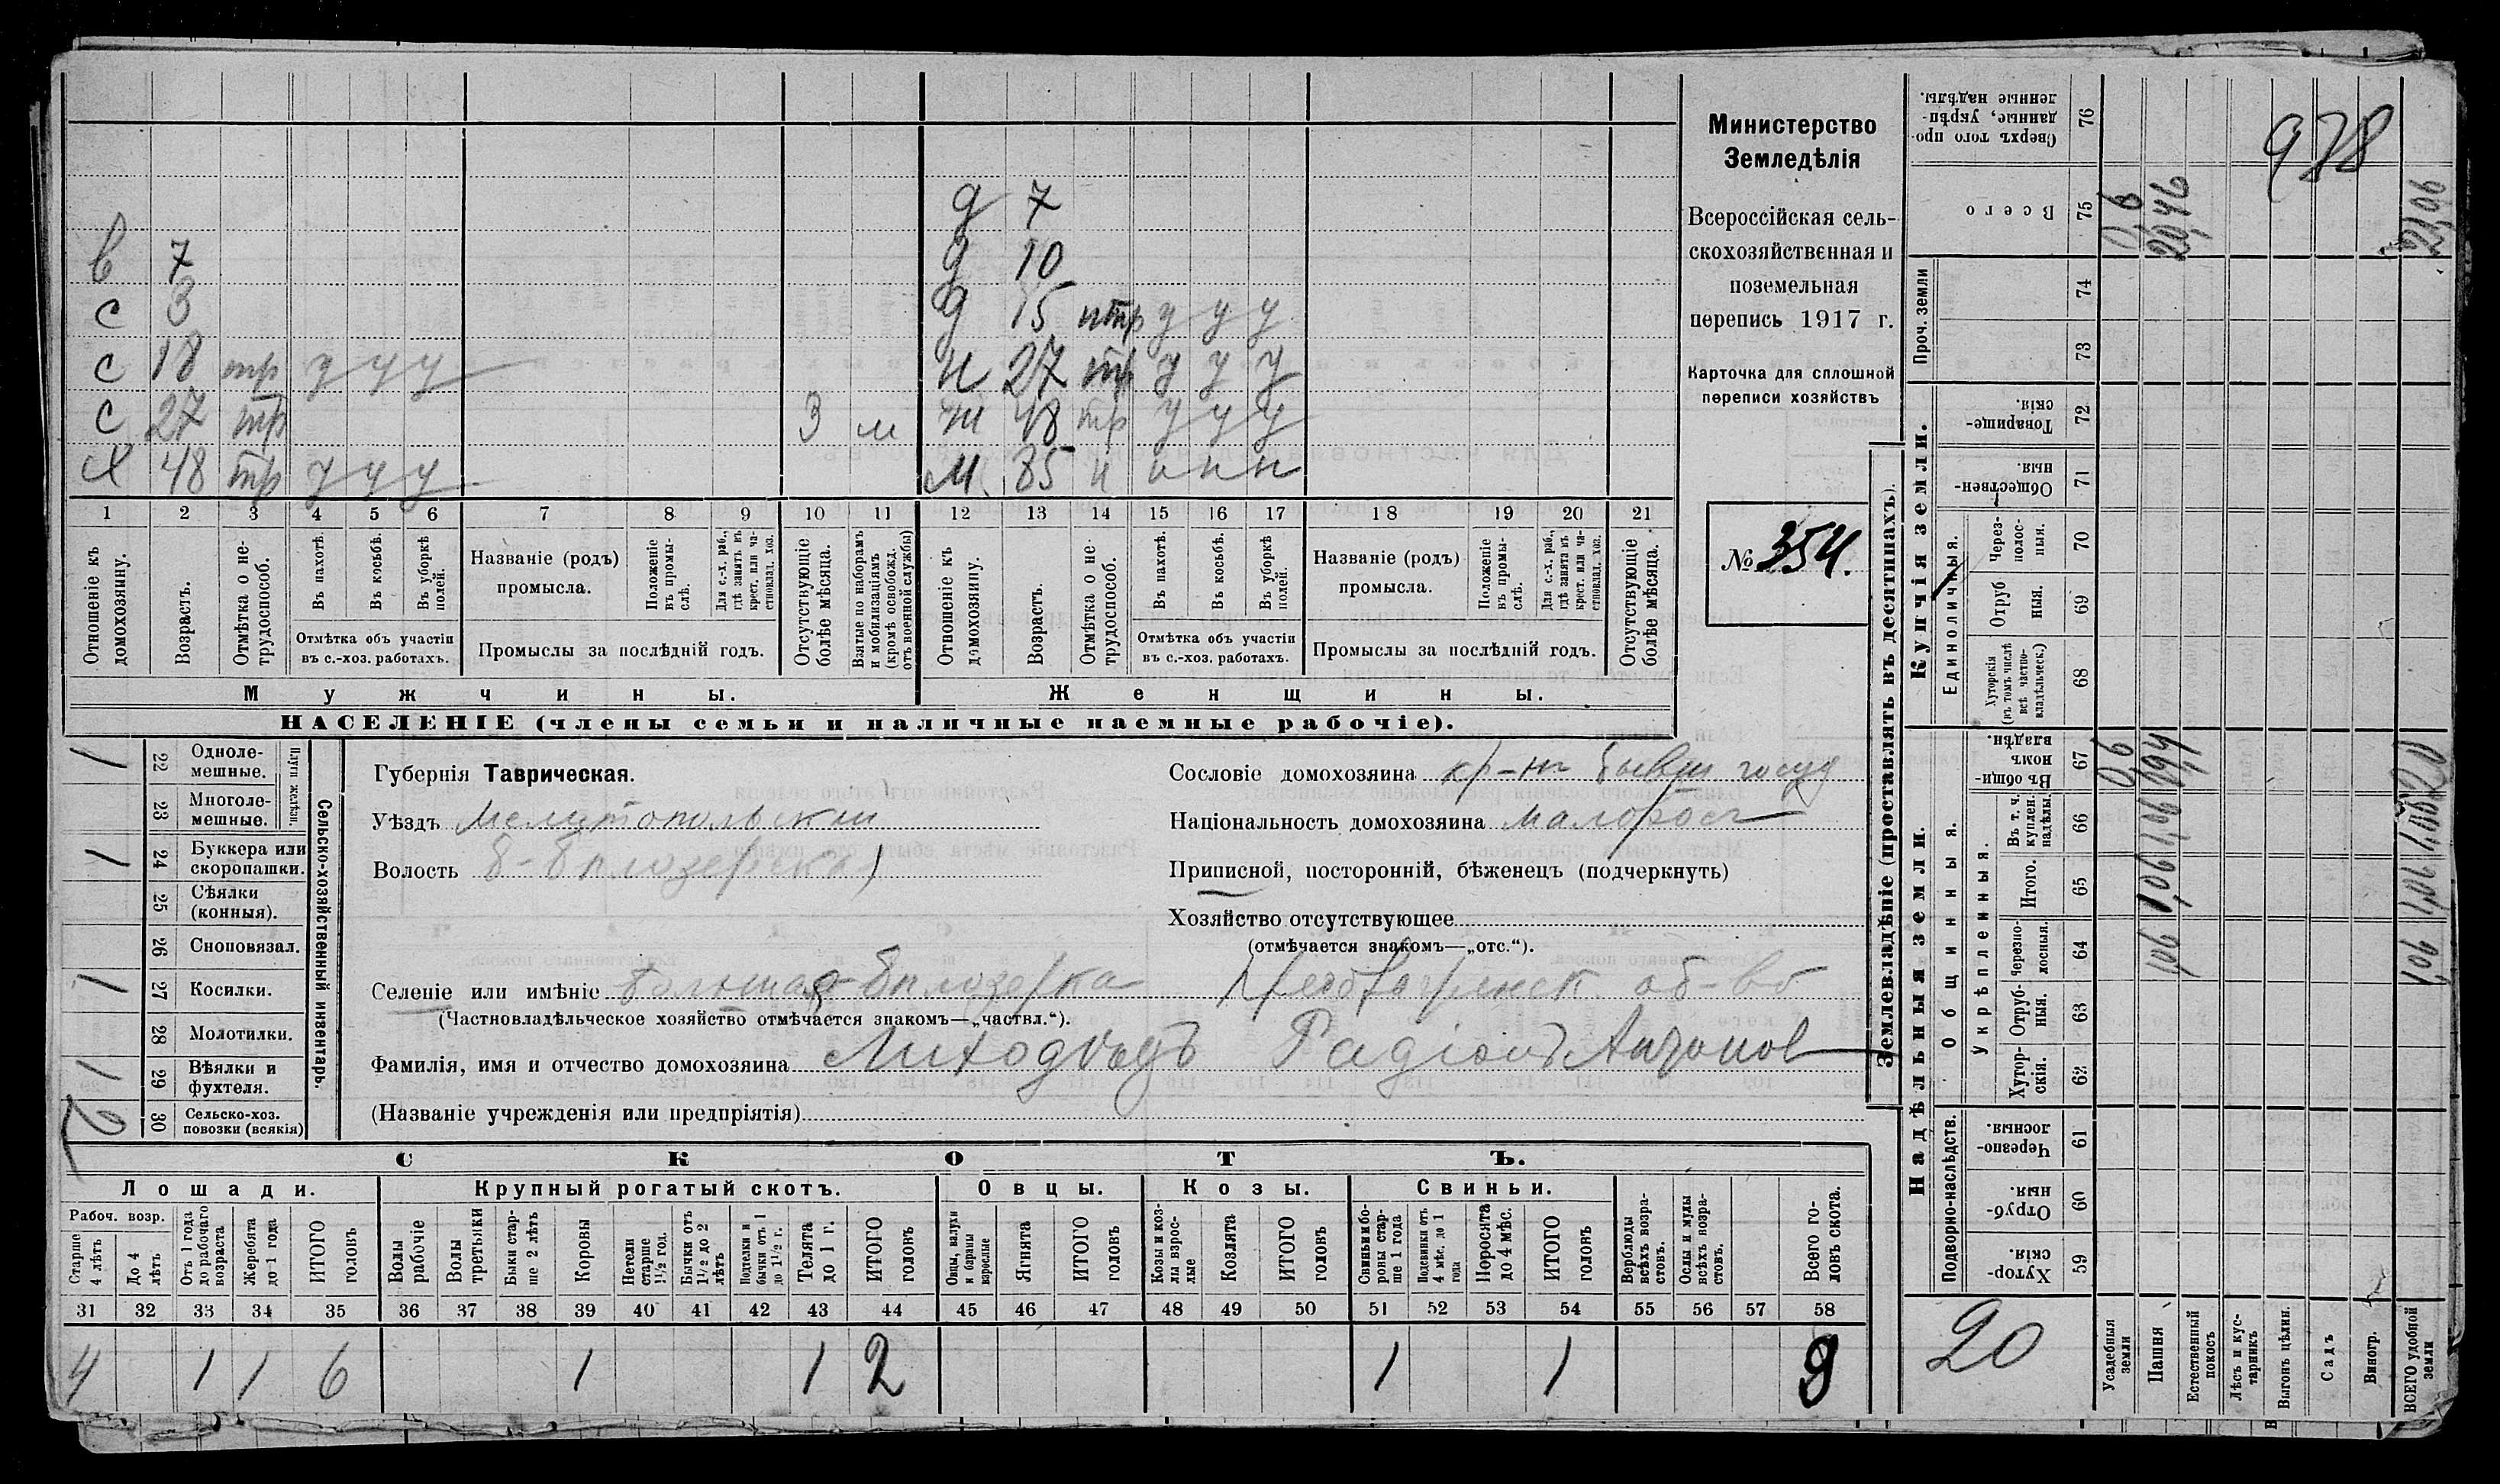 Министерство
Земледѣлія
Всероссійская сель-
скохозяйственная и
поземельная
перепись 1917 г.
Карточка для сплошной
переписи хозяйствъ
№ 354.
д 7
в 7 д 10
с 3 д 15 нтр у у у
с 18 тр у у у н 27 тр у у у
с 27 тр 3 м ж 48 тр у у у
х 48 тр у у у м 85 н н н н
1 2 3 4 5 6 7 8 9 10 11 12 13 14 15 16 17 18 19 20 21
Отношеніе къ домохозяину.
Возрастъ.
Отмѣтка о не-трудоспособ.
Въ пахотѣ.
Въ косьбѣ.
Въ уборкѣ полей.
Отмѣтка объ участіи
въ с.-хоз. работахъ.
Названіе (родъ)
промысла.
Положеніе въ промы-слѣ.
Для с.-х. раб., гдѣ занятъ въ крест. или ча-стновлад. хоз.
Промыслы за послѣдній годъ.
Отсутствующіе болѣе мѣсяца.
Взятые по наборамъ и мобилизаціямъ (кромѣ освобожд. отъ военной службы)
Отношеніе къ домохозяину.
Возрастъ.
Отмѣтка о не-трудоспособ.
Въ пахотѣ.
Въ косьбѣ.
Въ уборкѣ полей.
Отмѣтка объ участіи
въ с.-хоз. работахъ.
Названіе (родъ)
промысла.
Положеніе въ промы-слѣ.
Для с.-х. раб., гдѣ занята въ крест. или ча-стновлад. хоз.
Промыслы за послѣдній годъ.
Отсутствующіе болѣе мѣсяца.
Мужчины. Женщины.
НАСЕЛЕНІЕ (члены семьи и наличные наемные рабочіе).
Сельско-хозяйственный инвентарь.
Плуги желѣзн.
1 22 Однолемешные.
23 Многолемешные.
1 24 Буккера или скоропашки.
25 Сѣялки (конныя).
26 Сноповязал.
1 27 Косилки.
28 Молотилки.
1 29 Вѣялки и фухтеля.
2 30 Сельско-хоз. повозки (всякія)
Губернія Таврическая.
Уѣздъ Мелитопольскій
Волость Б-Бѣлозерская
Селеніе или имѣніе Большая-Бѣлозерка
(Частновладѣльческое хозяйство отмѣчается знакомъ—„частвл.“).
Фамилія, имя и отчество домохозяина Лиходѣдъ Радіонъ Антонов
(Названіе учрежденія или предпріятія)
Сословіе домохозяина кр-нъ бывш госуд
Національность домохозяина малоросъ
Приписной, посторонній, бѣженецъ (подчеркнуть)
Хозяйство отсутствующее
(отмѣчается знакомъ—„отс.“).
об-во
СКОТЪ.
Лошади. Крупный рогатый скотъ. Овцы. Козы. Свиньи.
Рабоч. возр.
Старше 4 лѣтъ
До 4 лѣтъ
Отъ 1 года до рабочаго возраста
Жеребята до 1 года
ИТОГО головъ
Волы рабочіе
Волы третьяки
Быки старше 2 лѣтъ
Коровы
Нетели старше 1½ год.
Бычки отъ 1½ до 2 лѣтъ
Подтелки и бычки отъ 1 до 1½ г.
Телята до 1 г.
ИТОГО головъ
Овцы, валухи и бараны взрослые
Ягнята
ИТОГО головъ
Козы и козлы взрослые
Козлята
ИТОГО головъ
Свиньи и боровы старше 1 года
Подсвинки отъ 4 мѣс. до 1 года
Поросята до 4 мѣс.
ИТОГО головъ
Верблюды всѣхъ возрастовъ.
Ослы и мулы всѣхъ возрастовъ.
Всего головъ скота.
31 32 33 34 35 36 37 38 39 40 41 42 43 44 45 46 47 48 49 50 51 52 53 54 55 56 57 58
4 1 1 6 1 1 2 1 1 9
Землевладѣніе (проставлять въ десятинахъ).
Надѣльныя земли. Купчія земли. Проч. земли
Подворно-наслѣдств.
Общинныя.
Укрѣпленныя.
Единоличныя.
Хуторскія. 59
Отрубныя. 60
Черезполосныя. 61
Хуторскія. 62
Отрубныя. 63
Черезполосныя. 64
Итого. 65
Въ т. ч. куплен. надѣлы. 66
Въ общинномъ владѣн. 67
Хуторскія (въ томъ числѣ всѣ частновладѣльческ.) 68
Отрубныя. 69
Черезполосныя. 70
Общественныя. 71
Товарищескія. 72
73
74
Всего 75
Сверхъ того проданные, укрѣпленные надѣлы. 76
20
Усадебныя земли 0,6 0,6
Пашня 1,06 1,06 1,06 19,4 20,46
Естественный покосъ
Лѣсъ и кустарникъ
Выгонъ цѣлин.
Садъ
Виногр.
ВСЕГО удобной земли 1,06 1,06 1,06 20,0 21,06
978